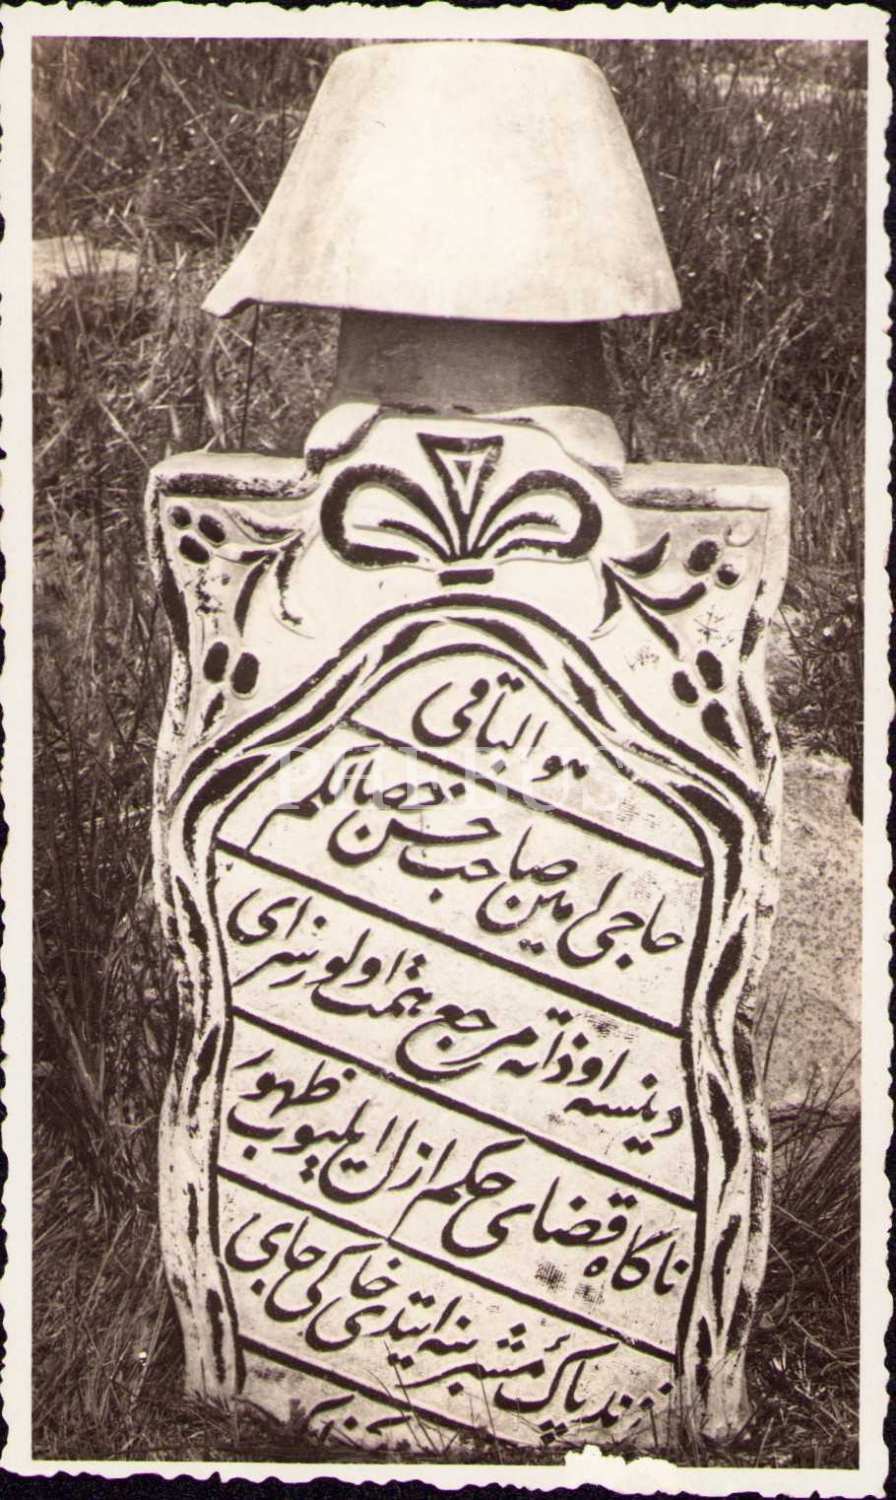 هو الباقی
حاجی امین صاحب حسن خصالكم
دینسه اوذاته مرجع همت اولور سزای
ناگاه قضای حكم ازل ایلیوب ظهور
رند پاك مشربنه ایتدی خاكی جای
PHEBUS